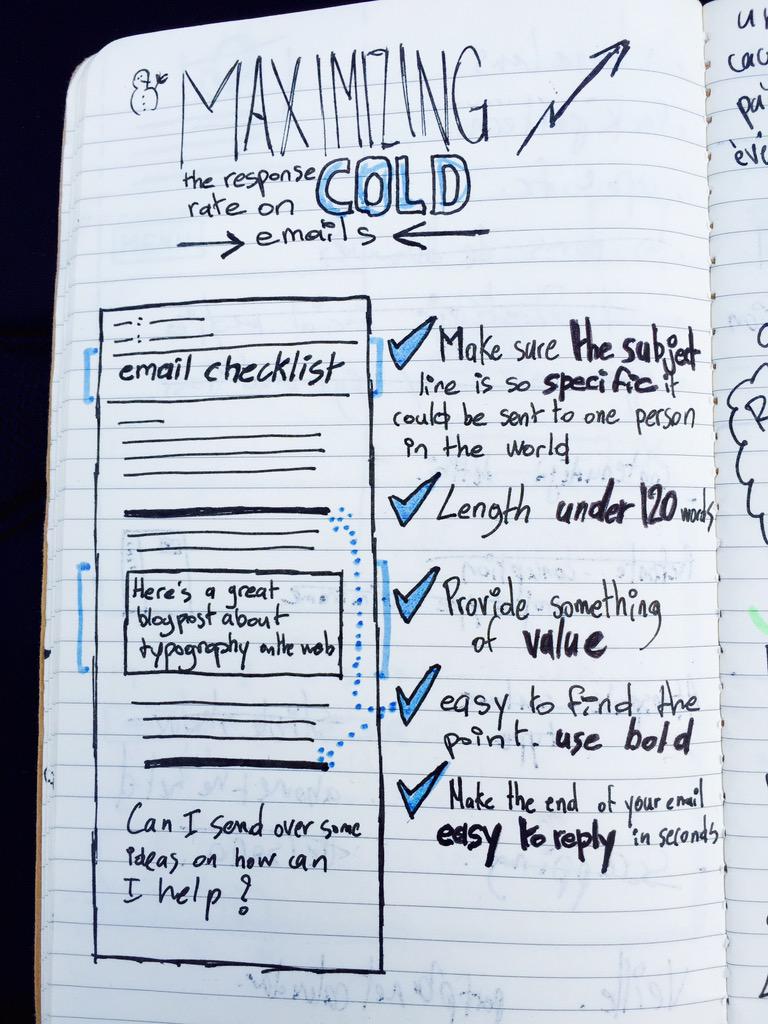 MAXIMIZING
the response
rate on COLD
emails
email checklist
Here's a great
blogpost about
typography on the web
Can I send over some
ideas on how can
I help?
Make sure the subject
line is so specific it
could be sent to one person
in the world
Length under 120 words
Provide something
of value
easy to find the
point. use bold
Make the end of your email
easy to reply in seconds